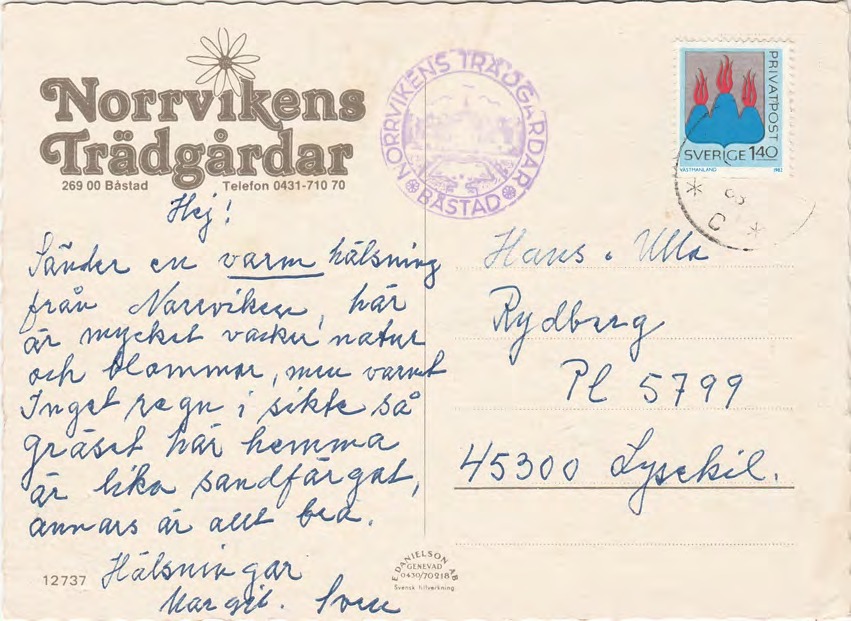 Norrvikens
Trädgårdar
269 00 Båstad Telefon 0431-710 70
Hej!
Sänder en varm hälsning
från Norrviken, här
är mycket vacker natur
och blommor, men varmt
Inget regn i sikte så
gräset här hemma
är lika sandfärgat,
annars är allt bra.
Hälsningar
Margit. Sven
12737
NORRVIKENS TRÄDGÅRDAR
BÅSTAD
PRIVATPOST
SVERIGE 140
VÄSTMANLAND 1982
C
Hans o Ulla
Rydberg
Pl 5799
45300 Lysekil.
E. DANIELSON AB
GENEVAD
0430/70218
Svensk tillverkning